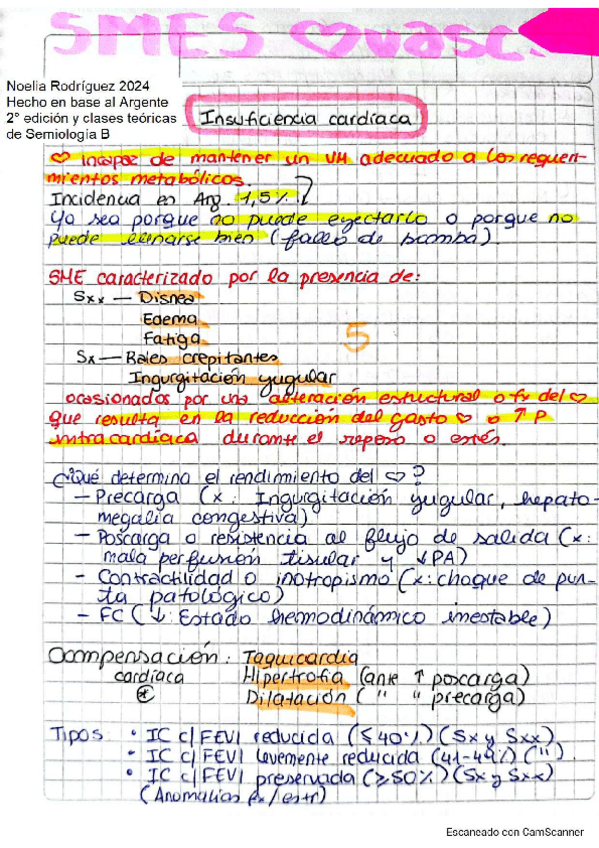 SMES ♡vasc.
Noelia Rodríguez 2024
Hecho en base al Argente
2° edición y clases teóricas
de Semiología B
Insuficiencia cardíaca
♡ incapaz de mantener un VM adecuado a los requeri-
mientos metabólicos.
Incidencia en Arg. 1,5%
Ya sea porque no puede eyectarlo o porque no
puede llenarse bien (fallo de bomba).
SME caracterizado por la presencia de:
Sxx — Disnea
Edema
Fatiga
5
Sx — Rales crepitantes
Ingurgitación yugular
ocasionados por una alteración estructural o fx del ♡
que resulta en la reducción del gasto ♡ o ↑ P
intracardíaca durante el reposo o estrés.
¿Qué determina el rendimiento del ♡?
— Precarga (x: Ingurgitación yugular, hepato-
megalia congestiva)
— Poscarga o resistencia al flujo de salida (x:
mala perfusión tisular y ↓PA)
— Contractilidad o inotropismo (x: choque de pun-
ta patológico)
— FC (↓: Estado hemodinámico inestable)
Compensación: Taquicardia
cardíaca Hipertrofia (ante ↑ poscarga)
* Dilatación ( " " precarga)
Tipos: • IC c/FEVI reducida (≤40%) (Sx y Sxx)
• IC c/FEVI levemente reducida (41-49%) (")
• IC c/FEVI preservada (≥50%) (Sx y Sxx)
(Anomalías fx/estr)
Escaneado con CamScanner